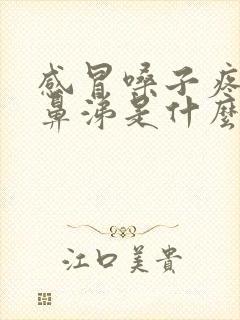 感冒嗓子疼
鼻涕是什麼
江口美貴